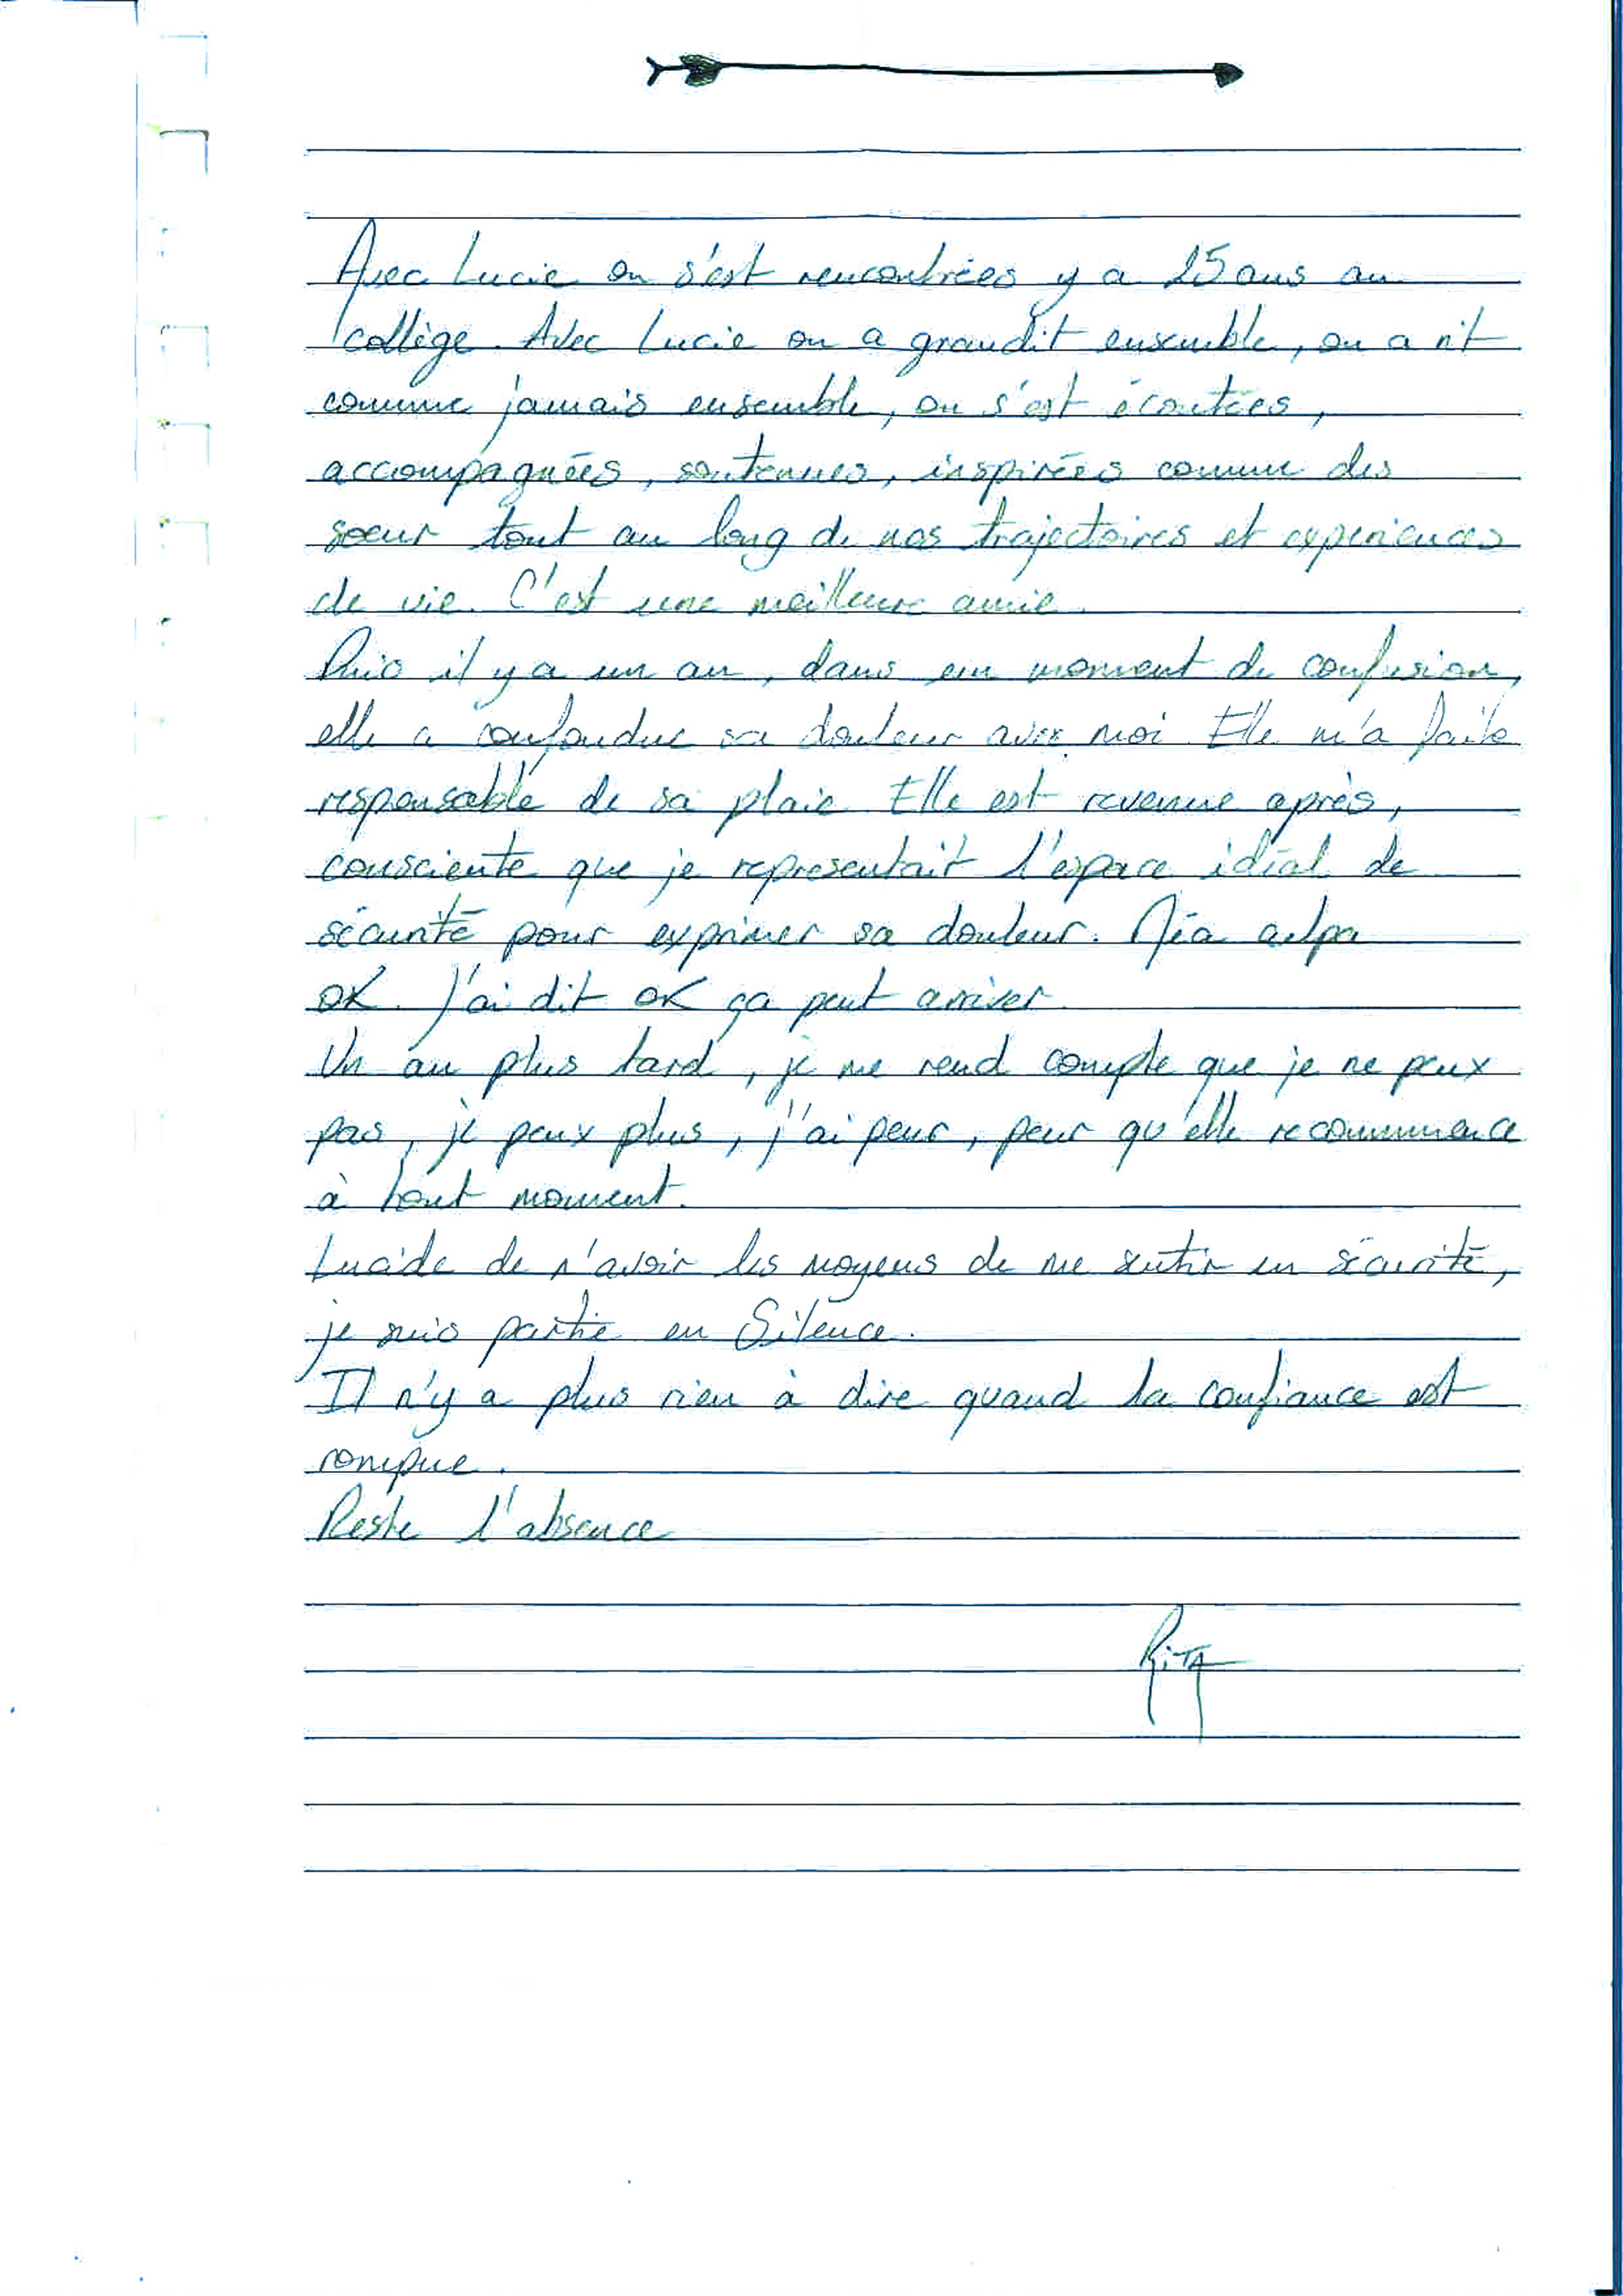 Avec Lucie on s'est rencontrées y a 25 ans au
collège. Avec Lucie on a grandit ensemble, on a rit
comme jamais ensemble, on s'est écoutées,
accompagnées, soutenues, inspirées comme des
soeur tout au long de nos trajectoires et experiences
de vie. C'est une meilleure amie.
Puis il y a un an, dans un moment de confusion,
elle a confondue sa douleur avec moi. Elle m'a faite
responsable de sa plaie. Elle est revenue après,
consciente que je representait l'espace idéal de
sécurité pour exprimer sa douleur. Méa culpa
OK. J'ai dit OK ça peut arriver.
Un an plus tard, je me rend compte que je ne peux
pas, je peux plus, j'ai peur, peur qu'elle recommence
à tout moment.
Lucide de n'avoir les moyens de me sentir en sécurité,
je suis partie en Silence.
Il n'y a plus rien à dire quand la confiance est
rompue.
Reste l'absence
RiTA